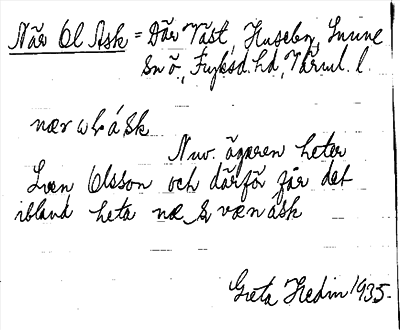 När Ol Ask = Där Väst, Huseby, Sunne
sn ö., Fryksd. hd, Värml. l.
nær ω l á sk
Nuv. ägaren heter
Sven Olsson och därför får det
ibland heta næ & væn ask
Greta Hedin 1935.